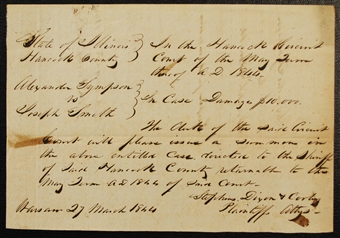 State of Illinois } In the Hancock Circuit
Hancock County } Court of the May Term
thereof A D 1844
Alexander Sympson
vs } In Case Damage $10,000
Joseph Smith
The clerk of the said Circuit
Court will please issue a summons in
the above entitled case directed to the Sheriff
of said Hancock County returnable to the
May Term A D 1844 of said Court
Stephens, Dixon & Cooley
Warsaw 27 March 1844 Plaintiffs Attys